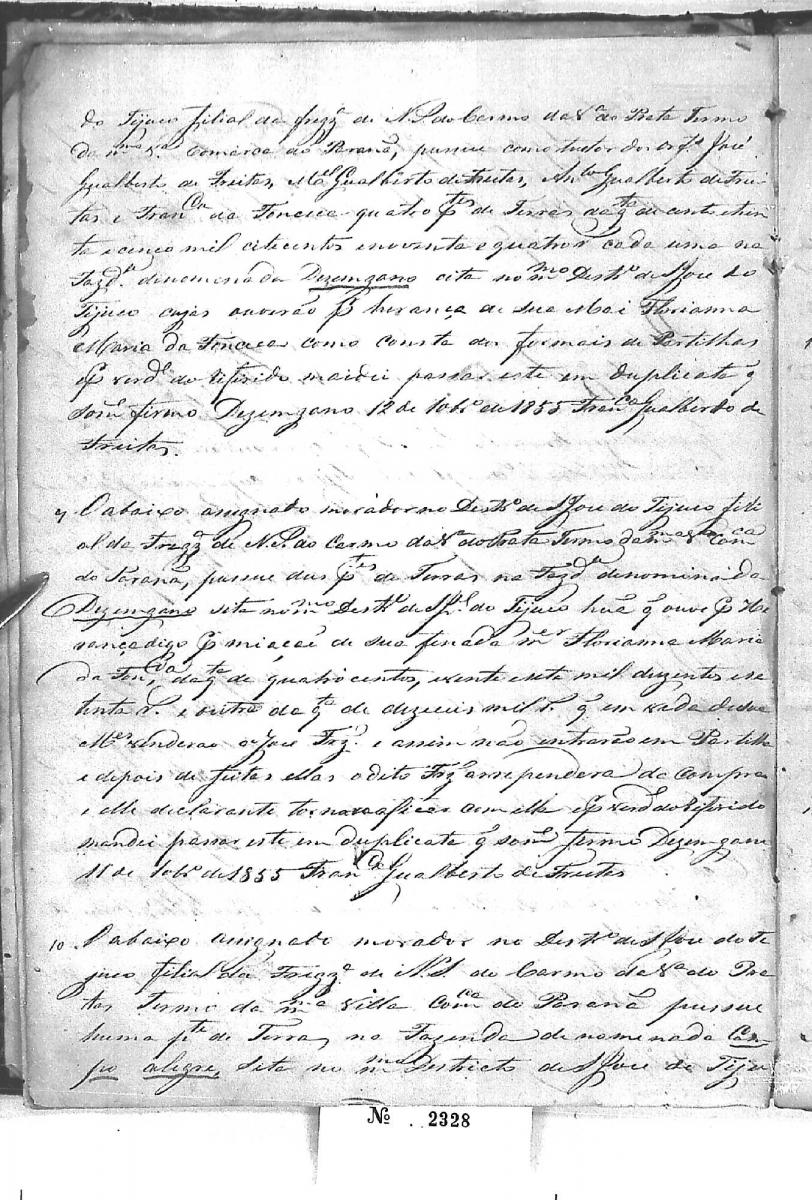 do Tijuco filial da fregª de N. S. do Carmo da Vª do Prata Termo
da mma Vª Comarca do Paraná, possue como tutor dos Orfs José
Gualberto de Freitas, Mel Gualberto de Freitas, Anto Gualberto de Frei-
tas e Franca da Fonceca quatro ptes de Terras da qta de cento etrin
ta e cinco mil oitecentos e noventa e quatro r cada uma na
Fazda dinomenada Dezemgano cita no mmo Destro de S José do
Tijuco cujas ouverão pr herança de sua Mai Florianna
Maria da Fonceca como consta dos formais de Partilhas
e pr verde do referido mandei passar este em duplicata q
somte firmo Dezemgano 12 de 10bro de 1855 Franco Gualberto de
Freitas.
9 O abaixo asignado morador no Destro de S José do Tijuco fili
al da Fregª de N. S. do Carmo da Vª do Prata Termo da mma Vª Comca
do Paraná, possue duas ptes de Terras na Fazda denominada
Dezemgano sita no mmo Destro de S Je do Tijuco huã q ouve pr He
rança digo pr miação de sua finada mer Florianna Maria
da Fonca da qta de quatrocentos, evente esete mil duzentos ese
tenta r. e outra da qta de dezeceis mil r. q em vida de sua
Mer venderão a José Frz. e assim não entrarão em Partilha
e depois de feitas ellas o dito Frz arrependera da compra
e elle declarante tornava aficar com ella e pr verde do referido
mandei passar este em duplicata q somte firmo Dezemgano
11 de 10bro de 1855 Franco Gualberto de Freitas
10 O abaixo asignado morador no Destro de S José do Te
juco filial da Fregª de N. S. do Carmo da Vª do Pra
ta Termo da mma Villa Comca do Paraná possue
huma pte de Terra, na Fazenda denomenada Cam-
po alegre, sita no mmo Destricto de S José do Tiju
No 2328